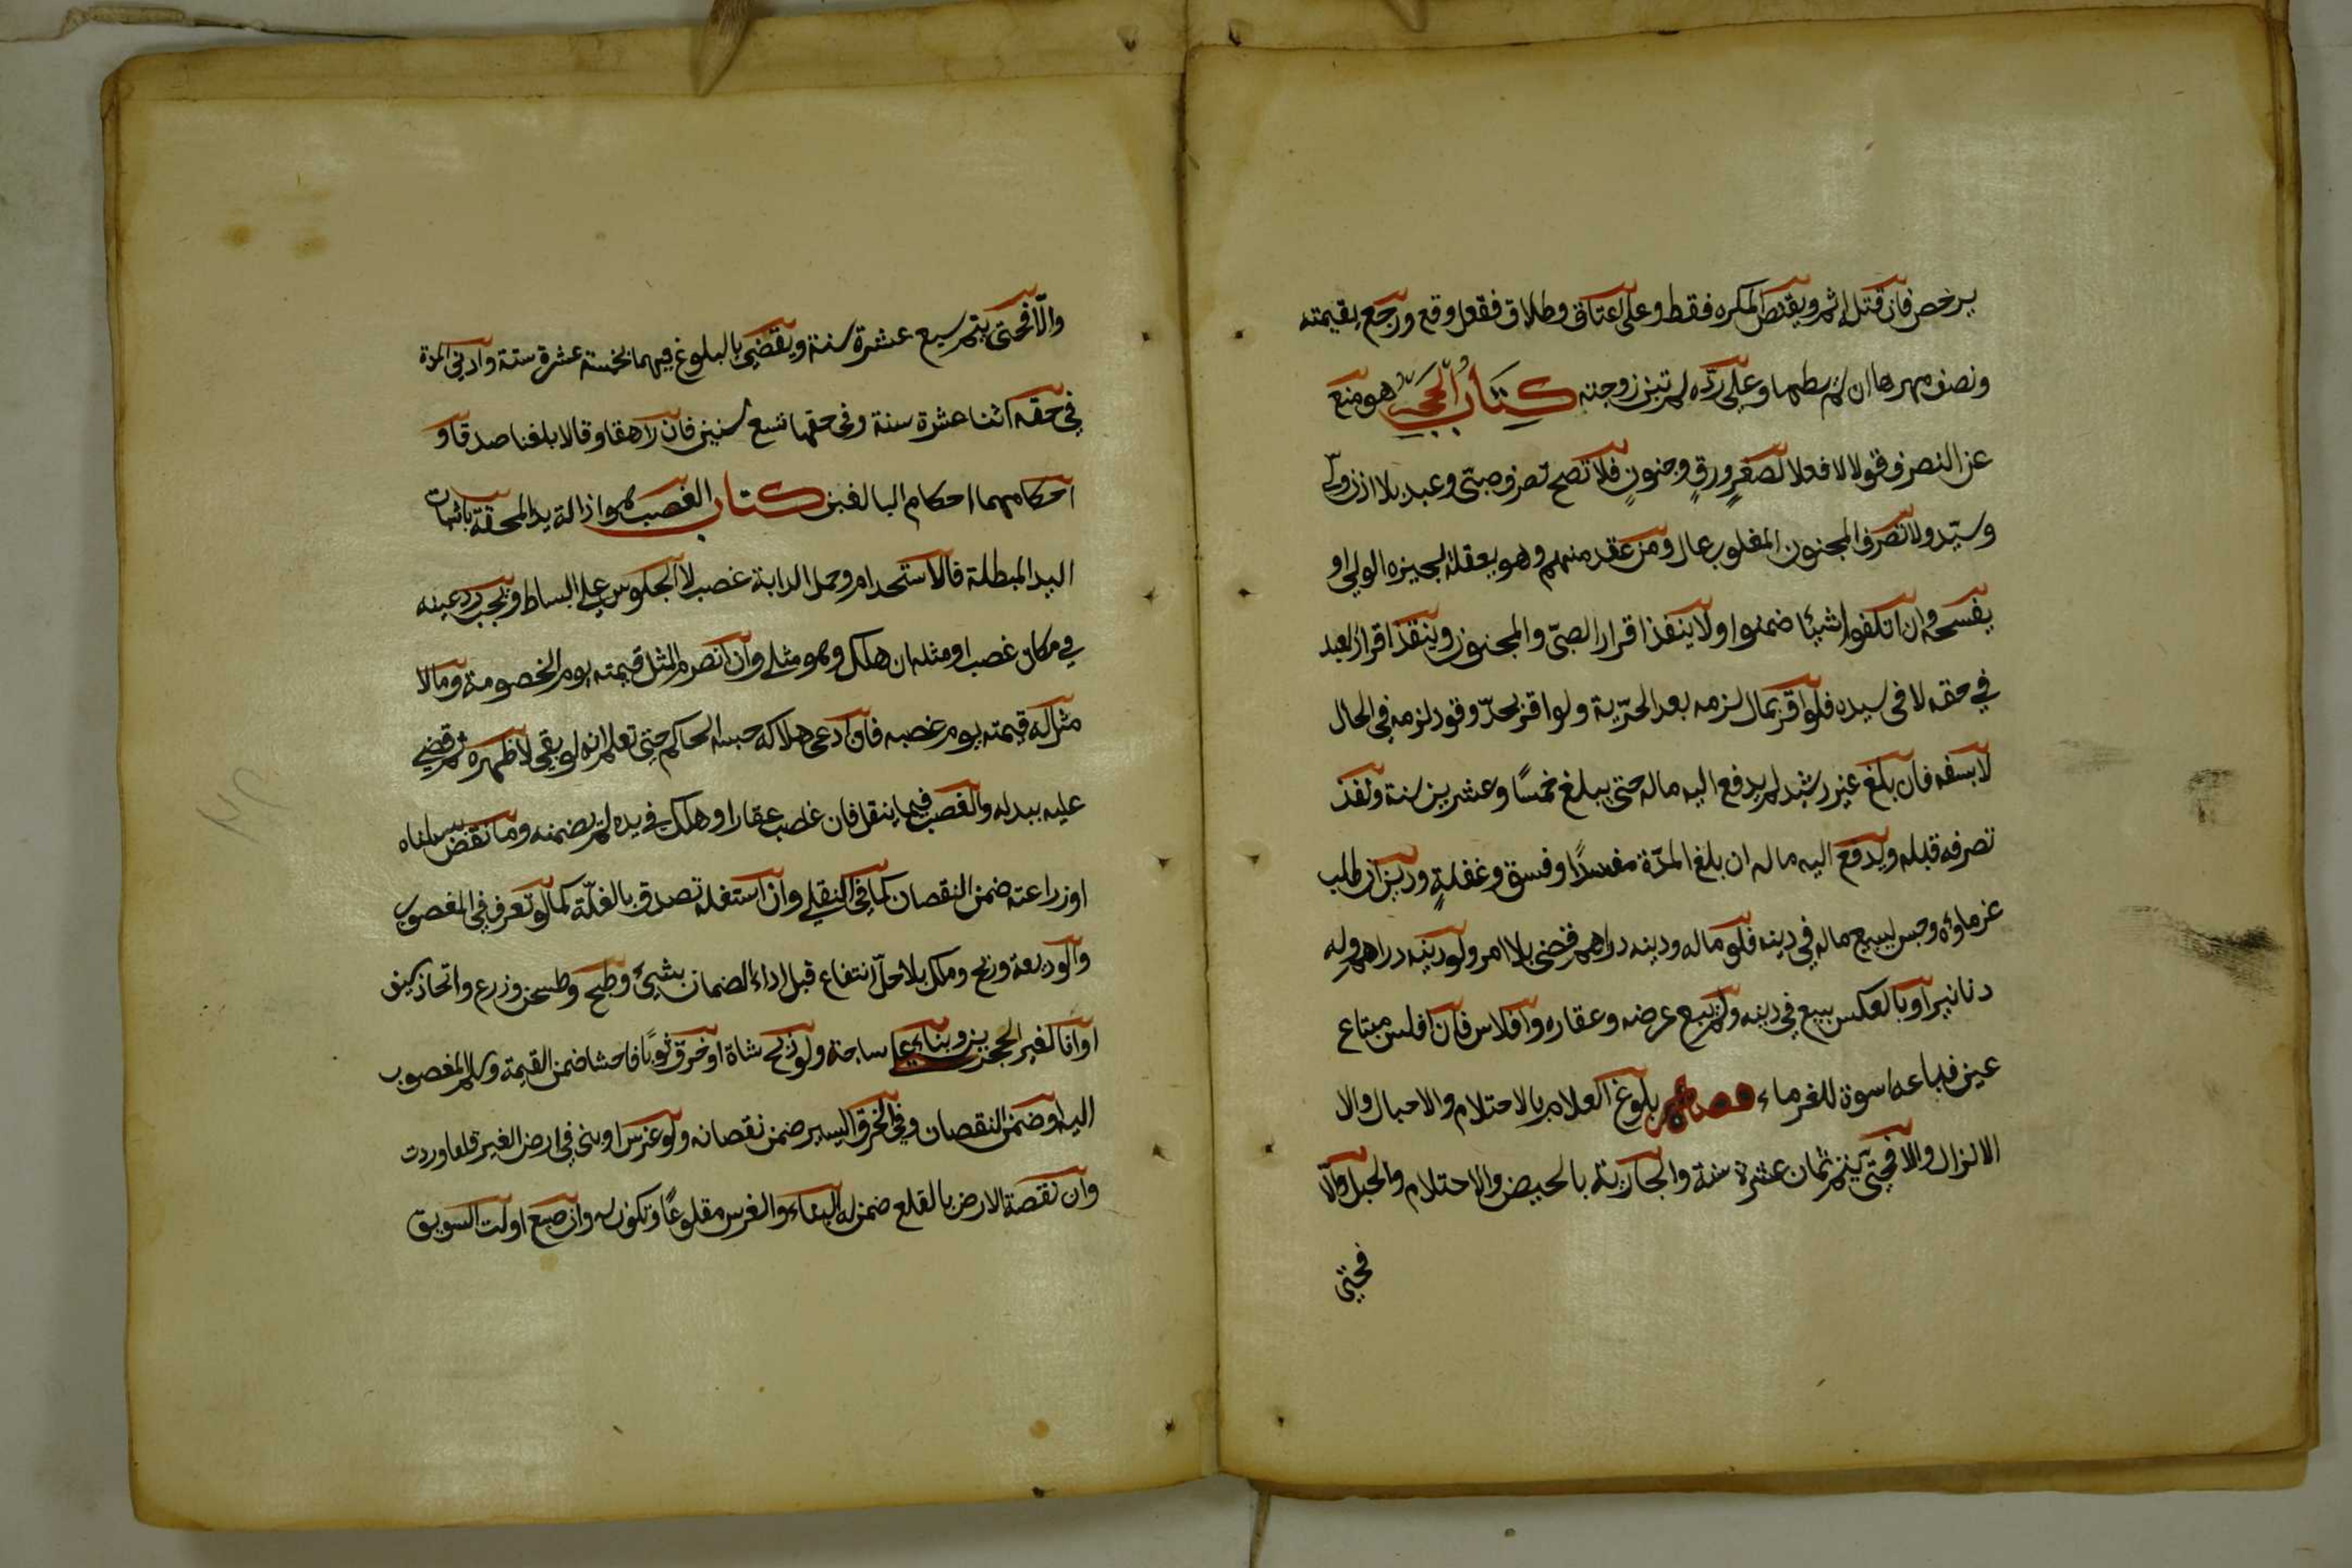 يرخص فان قتل اثم ويقتص المكره فقط وعلى اعتاق وطلاق ففعل وقع ورجع بقيمته
ونصف مهرها ان لم يطها وعلى ردة لم تبن زوجته كتاب الحجر هو منع
عن التصرف قولا لا فعلا لصغر ورق وجنون فلا تصح تصرف صبي وعبد بلا اذن ولي
وسيد ولا تصرف المجنون المغلوب بحال ومن عقد منهم وهو يعقله يجيزه الولي او
يفسخه وان اتلفوا شيئا ضمنوا ولا ينفذ اقرار الصبي والمجنون وينفذ اقرار العبد
في حقه لا في سيده فلو اقر بمال لزمه بعد الحرية ولو اقر بحد وقود لزمه في الحال
لا بسفه فان بلغ غير رشيد لم يدفع اليه ماله حتى يبلغ خمسًا وعشرين سنة ونفذ
تصرفه قبله ويدفع اليه ماله ان بلغ المدة مفسدًا وفسق وغفلةٍ ودين ان طلب
غرماؤه وحبس ليبيع ماله في دينه فلو ماله ودينه دراهم قضى بلا امر ولو دينه دراهم وله
دنانير او بالعكس بيع في دينه ولم يبع عرضه وعقاره وافلاس فان افلس مبتاع
عين فباعه اسوة للغرماء فصل بلوغ الغلام بالاحتلام والاحبال والا
الانزال والا فحتى يتم ثمان عشرة سنة والجارية بالحيض والاحتلام والحبل والا
فحتى
والا فحتى يتم سبع عشرة سنة ويقضي بالبلوغ فيهما بخمسة عشرة سنة وادنى المدة
في حقه اثنا عشرة سنة وفى حقها تسع سنين فان راهقا وقالا بلغنا صدقا و
احكامهما احكام البالغين كتاب الغصب هو ازالة يد المحقة باثبات
اليد المبطلة فالاستخدام وحمل الدابة غصب لا الجلوس على البساط ويجب رد عينه
في مكان غصبه او مثله ان هلك وهو مثلي وان انصرم المثل قيمته يوم الخصومة وما لا
مثل له قيمته يوم غصبه فان ادعى هلاكه حبسه الحاكم حتى تعلم انه لو بقي لاظهره ثم قضي
عليه ببدله والغصب فيما ينقل فان غصب عقارا وهلك في يده لم يضمنه وما نقض بسكناه
او زراعته ضمن النقصان كما في النقلي وان استغله تصدق بالغلة كما لو تصرف في المغصوب
والوديعة وربح وملك بلا حل انتفاع قبل اداء الضمان بشيئ وطبخ وطحن وزرع واتخاذ سيف
او انا لغير الحجرين وبناء على ساجة ولو ذبح شاة او خرق ثوبًا فاحشا ضمن القيمة وسلم المغصوب
اليه او ضمن النقصان وفي الخرق اليسير ضمن نقصانه ولو غرس او بنى في ارض الغير قلعا وردت
وان نقصة الارض بالقلع ضمن له البناء والغرس مقلوعًا وتكون له وان صبغ او لت السويق